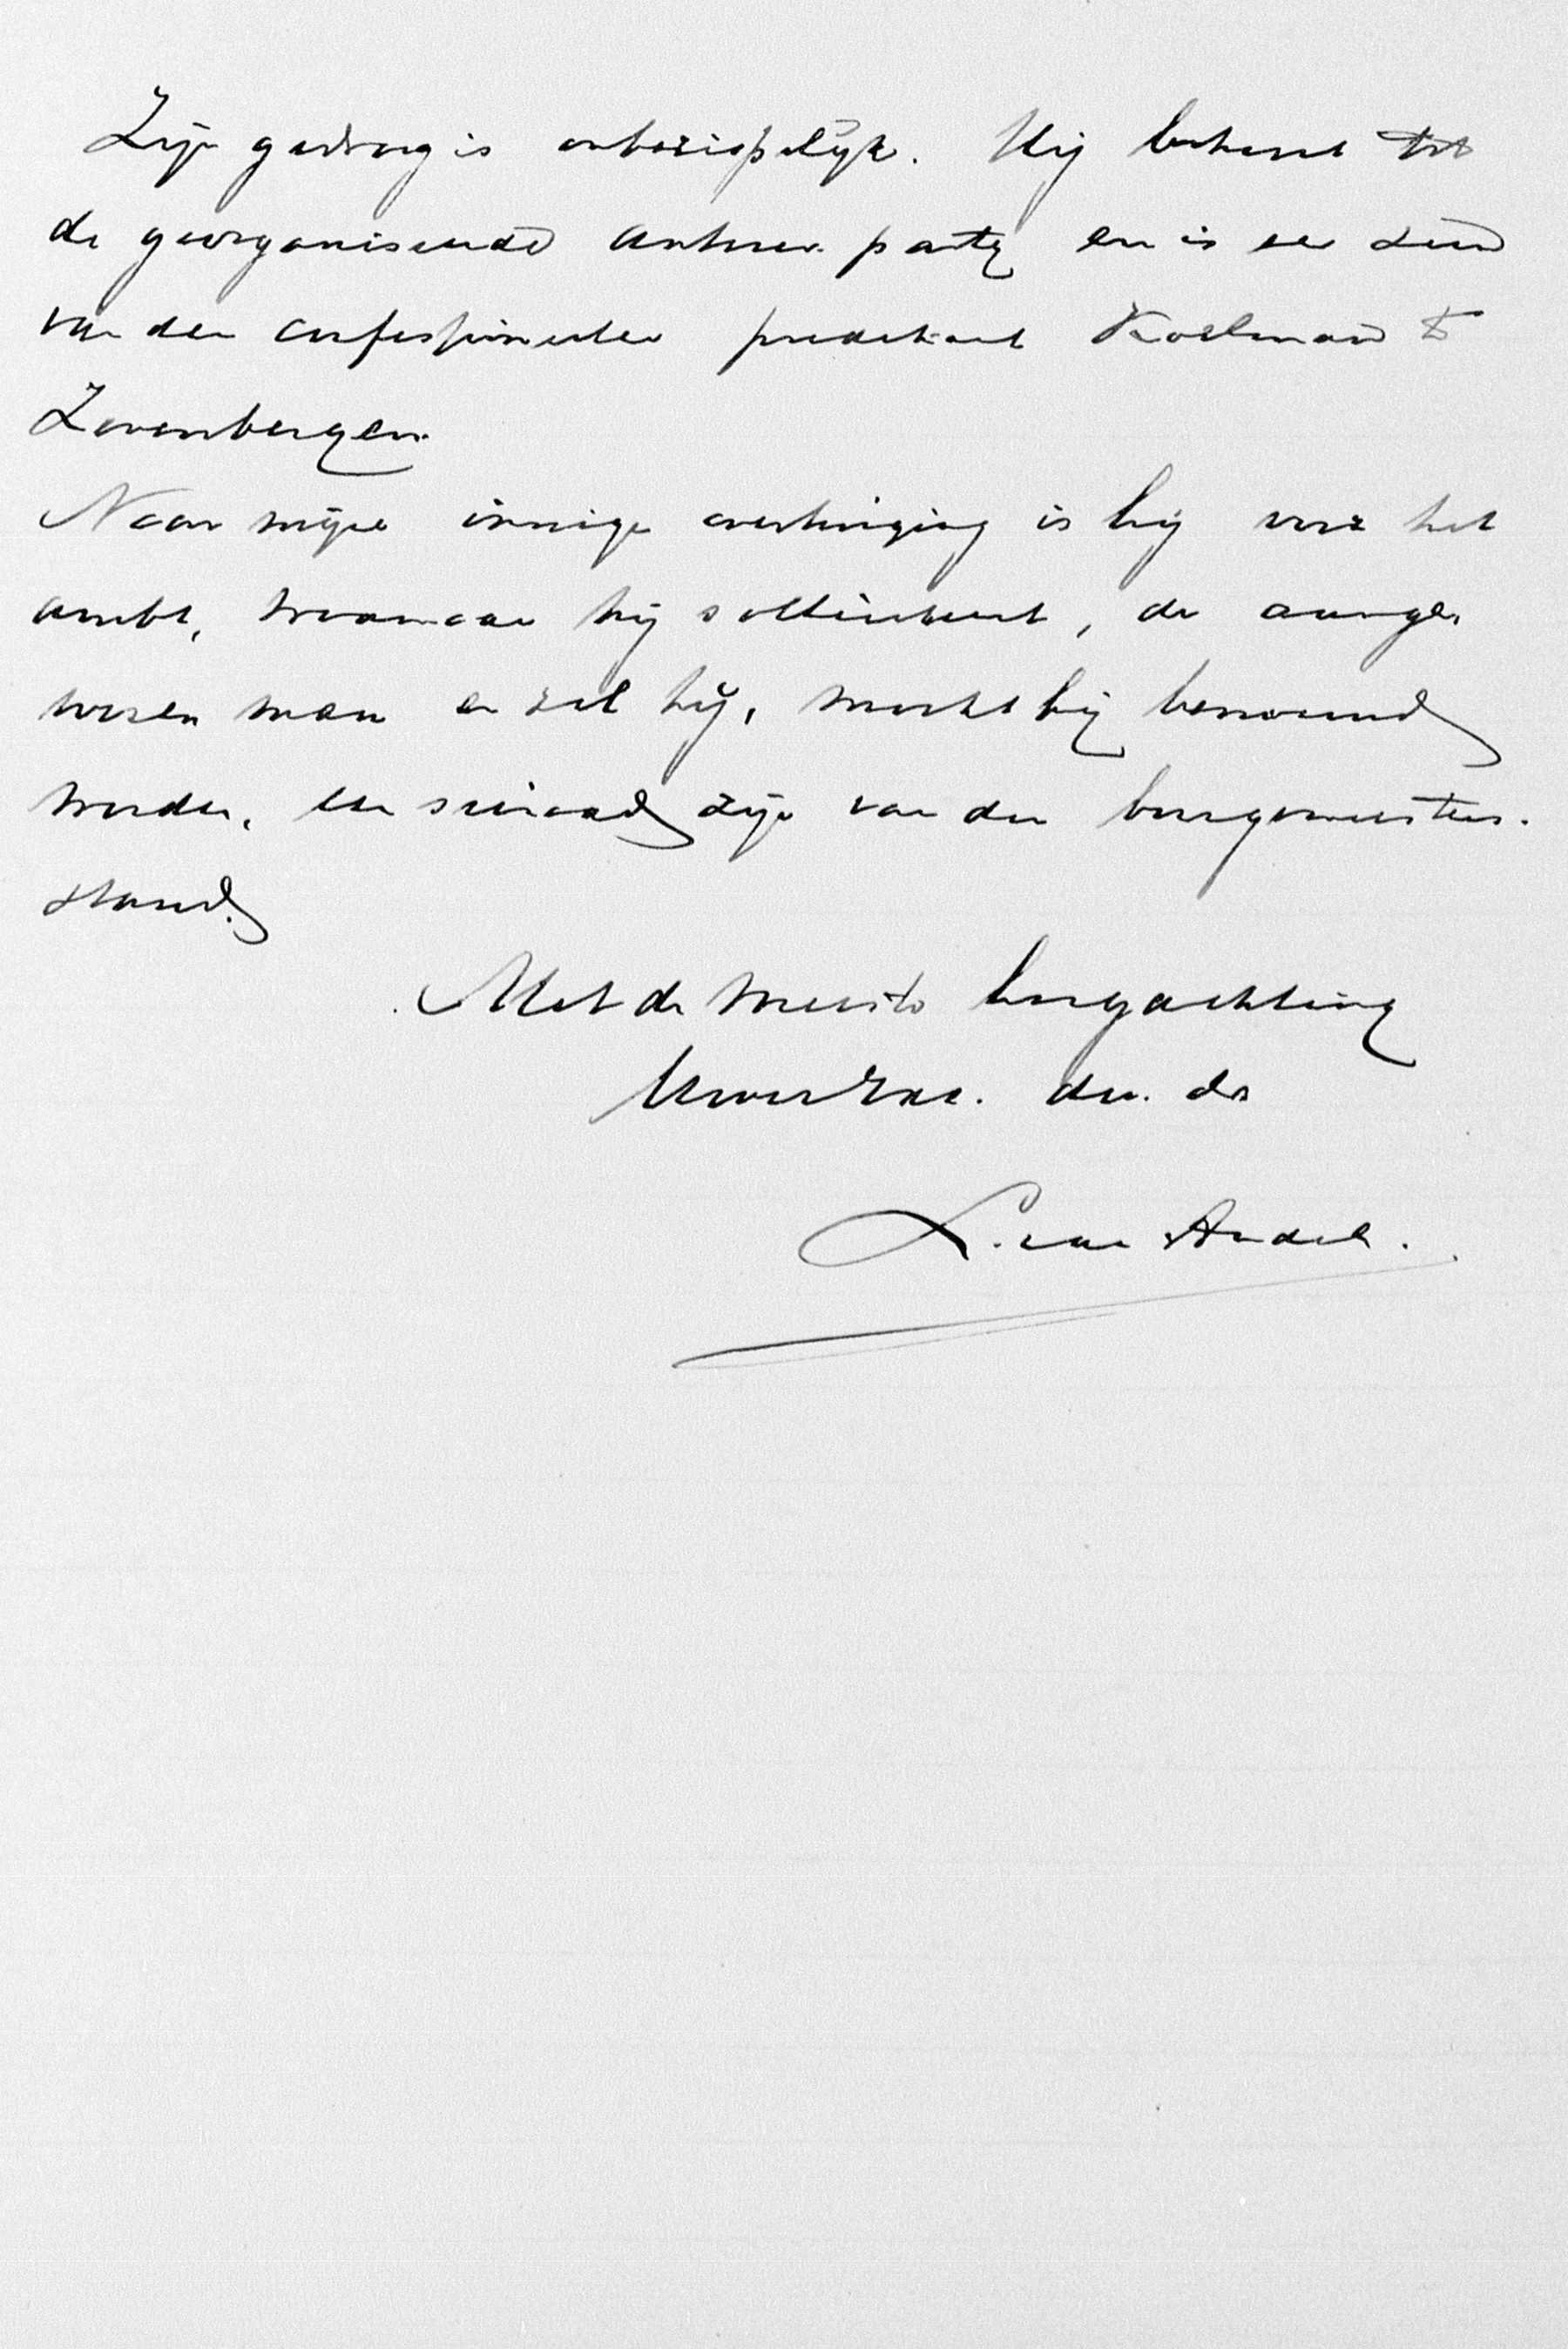 Zijn gedrag is onberispelijk. Hij behoort tot
de georganiseerde antirev. partij en is een zoon
van den confessioneelen predikant Koolman te
Zevenbergen.
Naar mijne innige overtuiging is hij voor het
ambt, waarnaar hij solliciteert, de aange-
wezen man en zal hij, mocht hij benoemd
worden, een sieraad zijn van den burgemeesters-
stand.
Met de meeste hoogachting
Uwer Exc. dw. dr
L. van Andel.